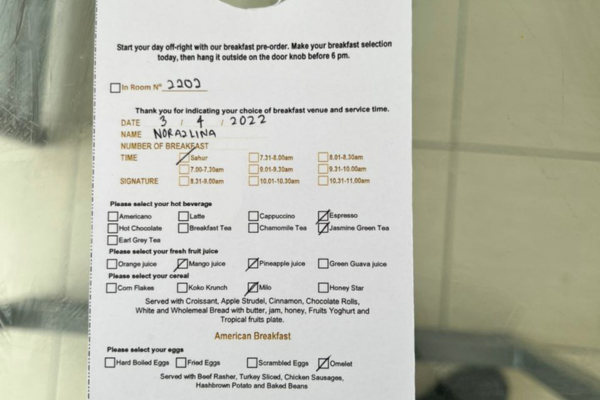 Start your day off-right with our breakfast pre-order. Make your breakfast selection
today, then hang it outside on the door knob before 6 pm.
In Room N° 2202
Thank you for indicating your choice of breakfast venue and service time.
DATE 3 / 4 / 2022
NAME NORAZLINA
NUMBER OF BREAKFAST
TIME Sahur 7.31-8.00am 8.01-8.30am
7.00-7.30am 9.01-9.30am 9.31-10.00am
SIGNATURE 8.31-9.00am 10.01-10.30am 10.31-11.00am
Please select your hot beverage
Americano Latte Cappuccino Espresso
Hot Chocolate Breakfast Tea Chamomile Tea Jasmine Green Tea
Earl Grey Tea
Please select your fresh fruit juice
Orange juice Mango juice Pineapple juice Green Guava juice
Please select your cereal
Corn Flakes Koko Krunch Milo Honey Star
Served with Croissant, Apple Strudel, Cinnamon, Chocolate Rolls,
White and Wholemeal Bread with butter, jam, honey, Fruits Yoghurt and
Tropical fruits plate.
American Breakfast
Please select your eggs
Hard Boiled Eggs Fried Eggs Scrambled Eggs Omelet
Served with Beef Rasher, Turkey Sliced, Chicken Sausages,
Hashbrown Potato and Baked Beans